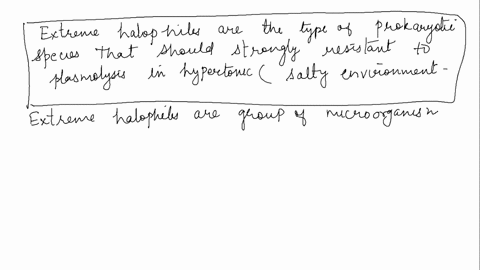 Extreme halophiles are the type of prokaryotic
species that should strongly resistant to
plasmolysis in hypertonic ( salty environment -
Extreme halophiles are group of microorganism